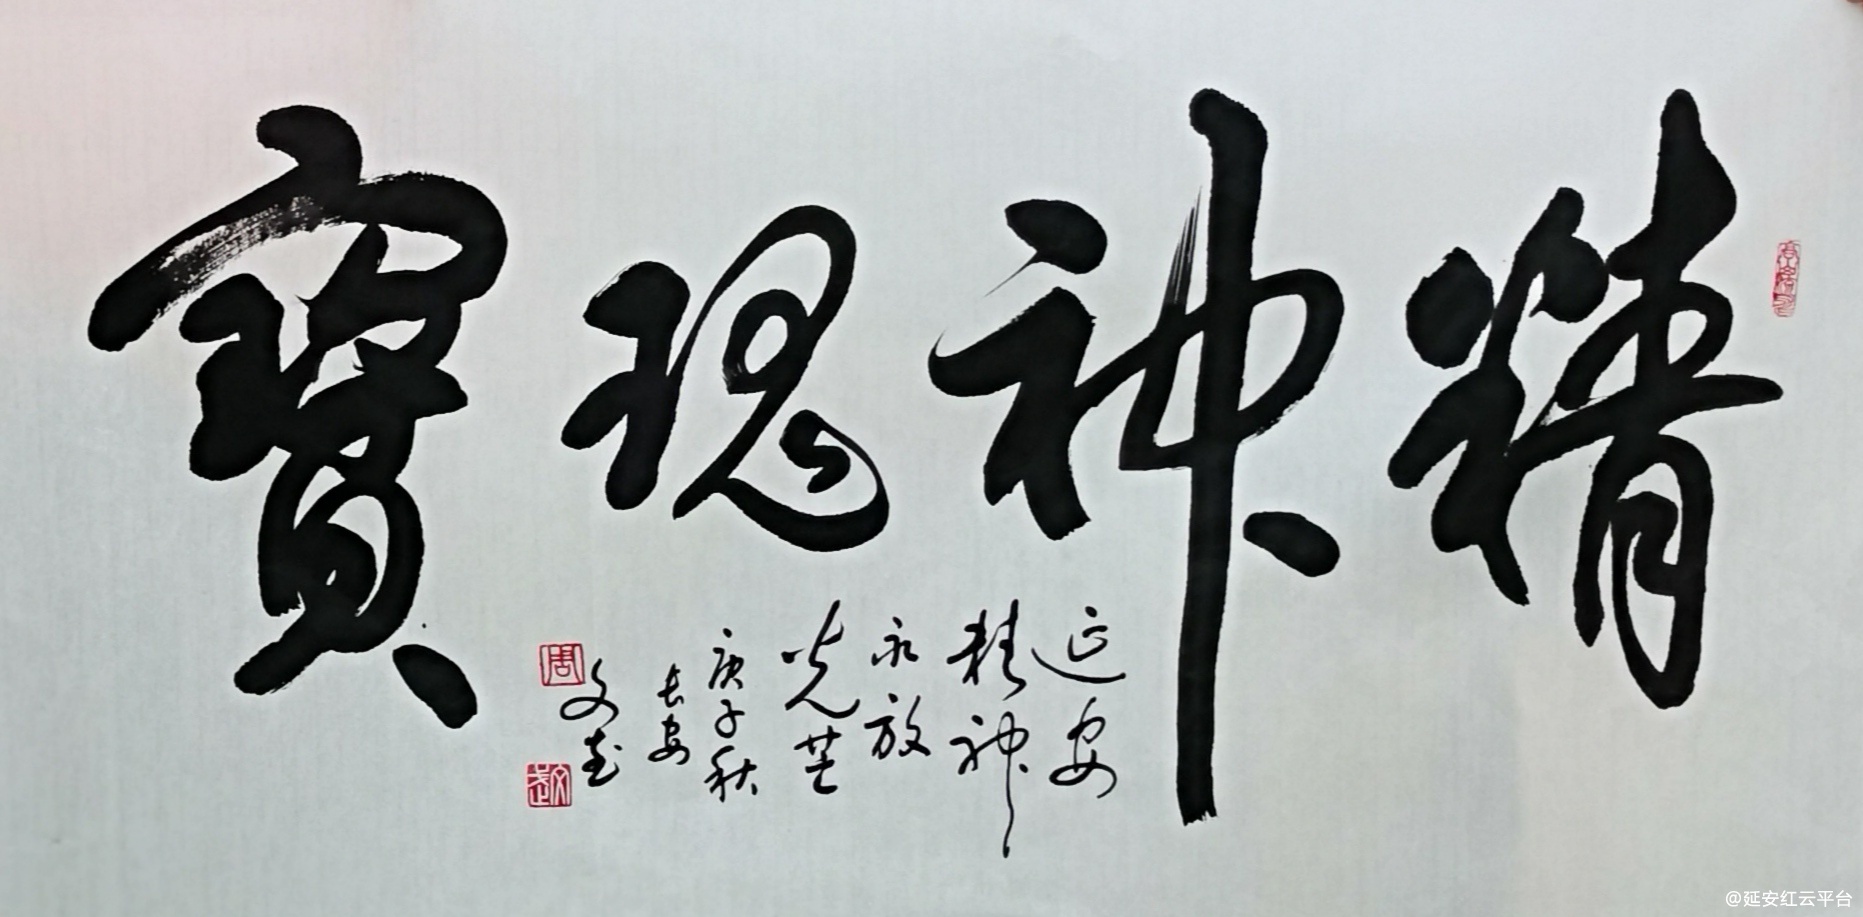 精神瑰寶
延安
精神
永放
光芒
庚子秋
长安
文武
周
文武
@延安红云平台